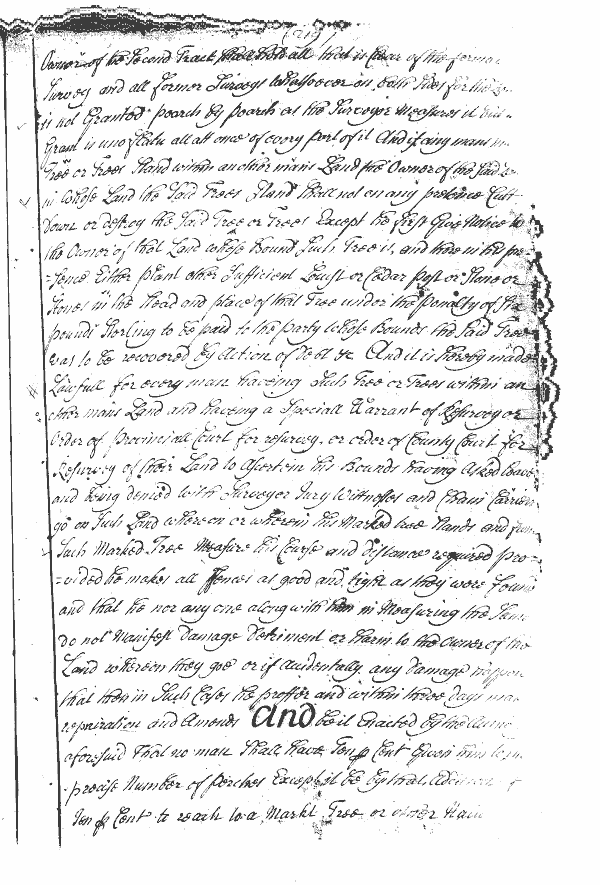 (219)
Owner of the Second Tract shall hold all that is Clear of the former
Survey and all former Surveys whatsoever on both sides for the
is not Granted poarch by poarch as the Surveyor Measures it but
Grant is uno flatu all at once of every part of it And if any mans
Tree or Trees Stand within another mans Land the Owner of the said
in whose Land the Said Trees Stand Shall not on any pretence Cutt
Down or destroy the Said Tree or Trees Except he first Give Notice to
the Owner of that Land whose Bound Such Tree is, and then in his pre
=sence Either plant other Sufficient Locust or Cedar post or Stone or
Stones in the Stead and place of that Tree under the Penalty of
pounds Sterling to be paid to the party whose Bounds the Said Tree
was to be recovered by Action of Debt &c And it is hereby made
Lawfull for every man haveing Such Tree or Trees within an
other mans Land and haveing a Speciall Warrant of Resurvey or
Order of Provinciall Court for resurvey, or order of County Court for
Resurvey of their Land to Ascertein his Bounds having Asked leave
and being denied with Surveyor Jury Witnesses and Chain Carriers
go on Such Land whereon or wherein his Marked tree Stands and from
Such Marked Tree Measure his Course and distance required pro=
=vided he makes all Fences as good and tight as they were found
and that he nor any one along with him in Measuring the Same
do not Manifest Damage Detriment or Harm to the Owner of the
Land whereon they goe or if accidentally any Damage happen
that then in Such Cases he proffer and within three days make
repairation and Amends And be it Enacted by the
aforesaid That no man Shall Have Ten p Cent Given him
precise Number of perches Except it be by that Addition of
Ten p Cent to reach to a Markt Tree or other